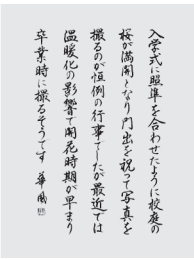 入学式に照準を合わせたように校庭の
桜が満開となり門出を祝って写真を
撮るのが恒例の行事でしたが最近では
温暖化の影響で開花時期が早まり
卒業時に撮るそうです 華